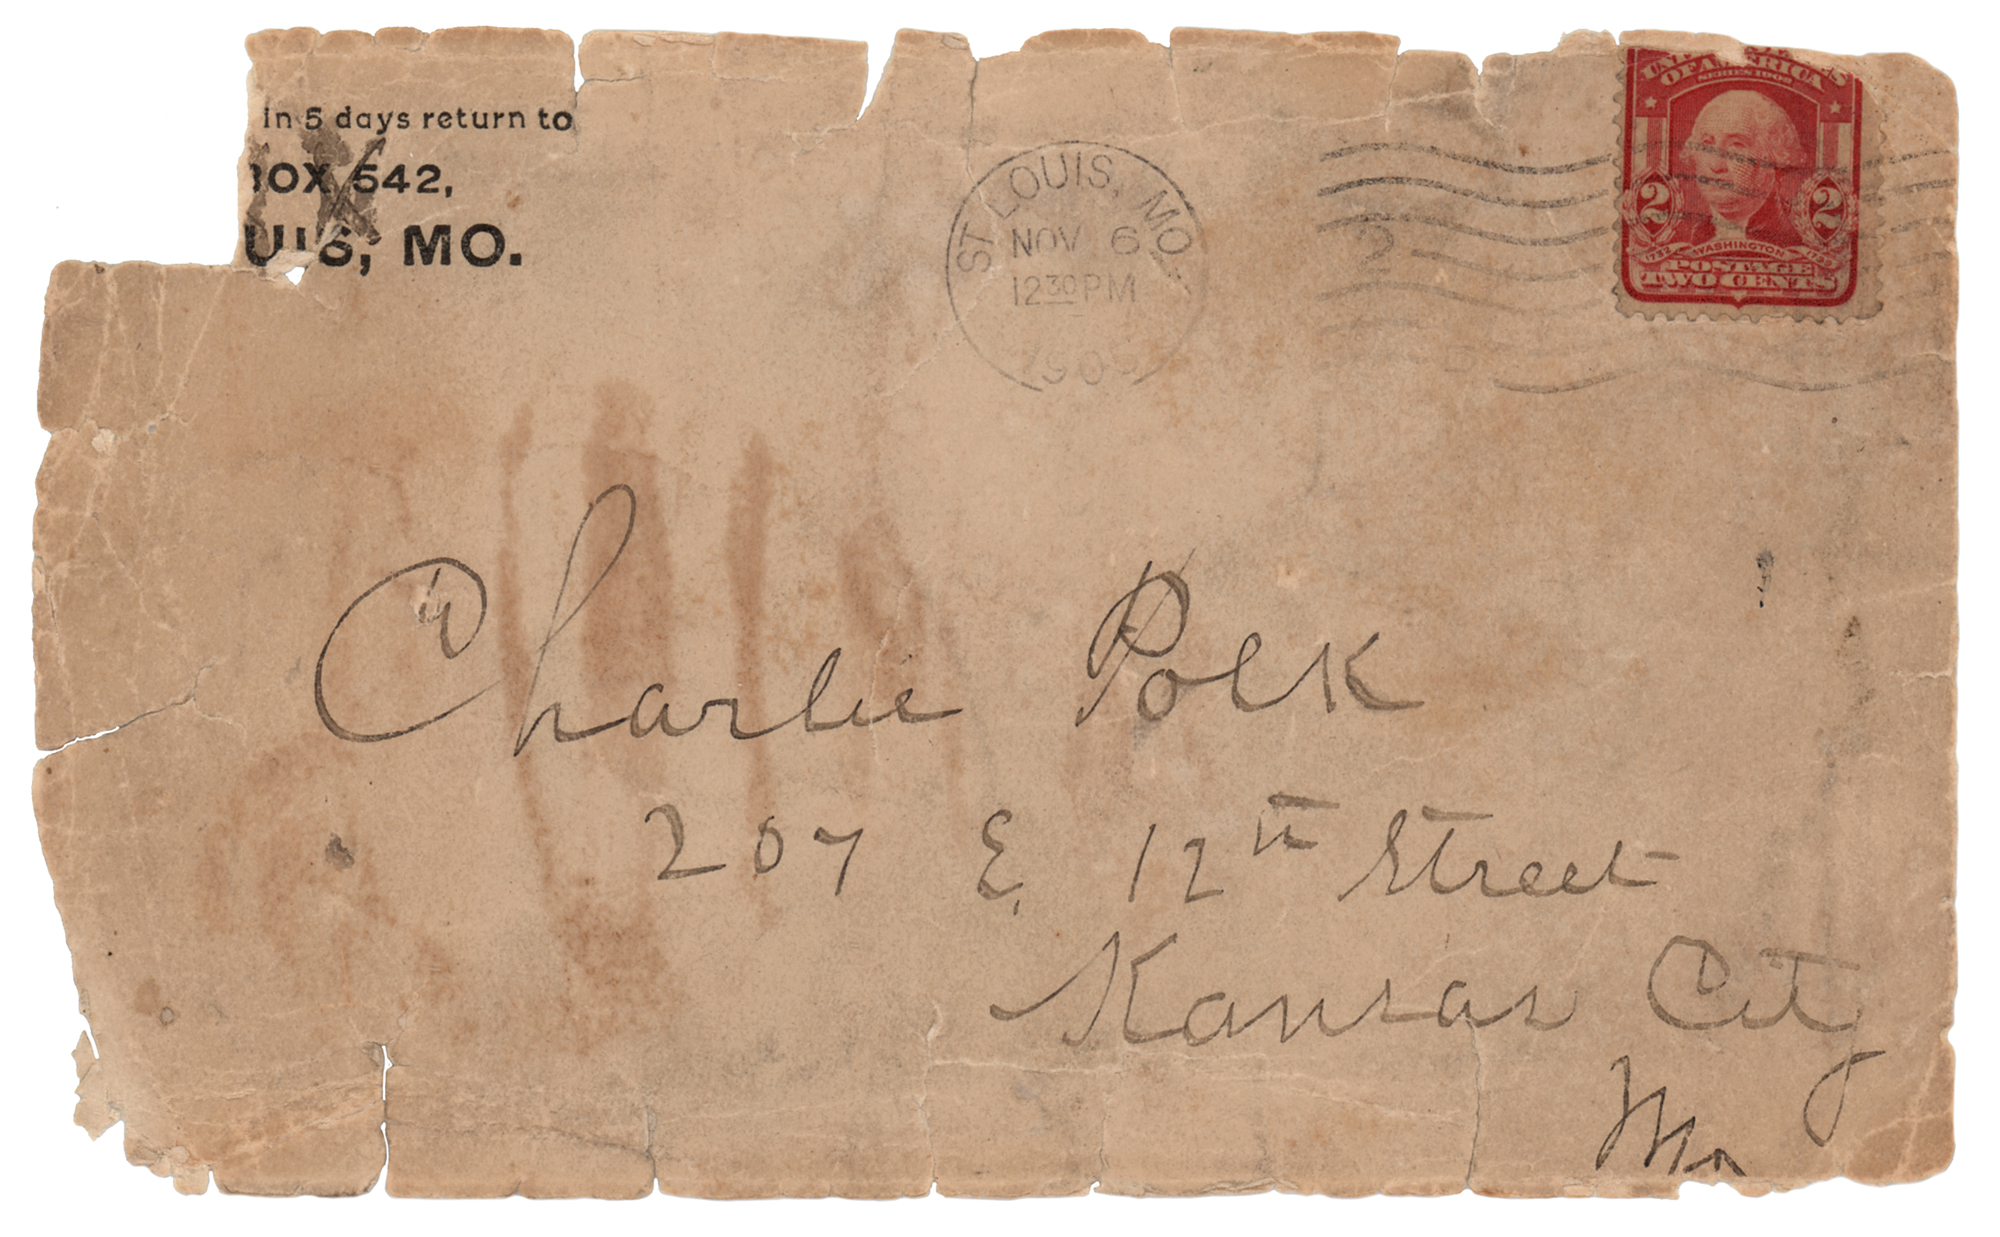 in 5 days return to
BOX 542,
UIS, MO.
ST LOUIS, MO.
NOV 6
12 30 PM
190
2
OF AMERICA
SERIES 1902
2 2
1732 WASHINGTON 1799
POSTAGE
TWO CENTS
Charlie Polk
207 E. 12th Street
Kansas City
Mo